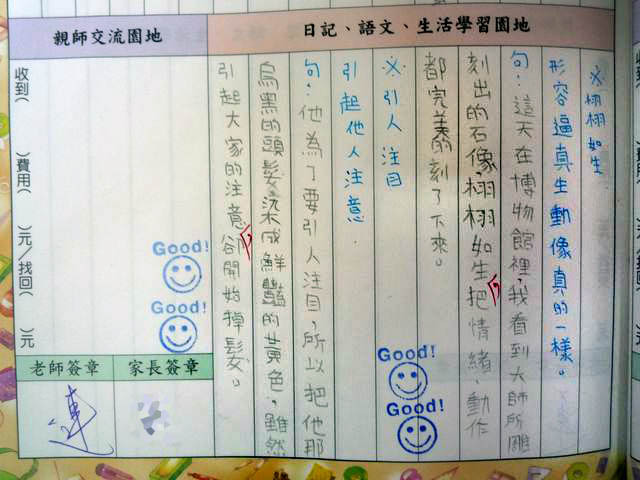 親師交流園地
日記、語文、生活學習園地
※栩栩如生
形容逼真生動像真的一樣。
句：這天在博物館裡，我看到大師所雕
刻出的石像，栩栩如生把情緒、動作
都完美的刻了下來。
※引人注目
引起他人注意.
句：他為了要引人注目，所以把他那
烏黑的頭髮染成鮮豔的黃色，雖然
引起大家的注意卻開始掉髮。
收到（ ）費用（ ）元／找回（ ）元
Good!
Good!
Good!
Good!
老師簽章
家長簽章